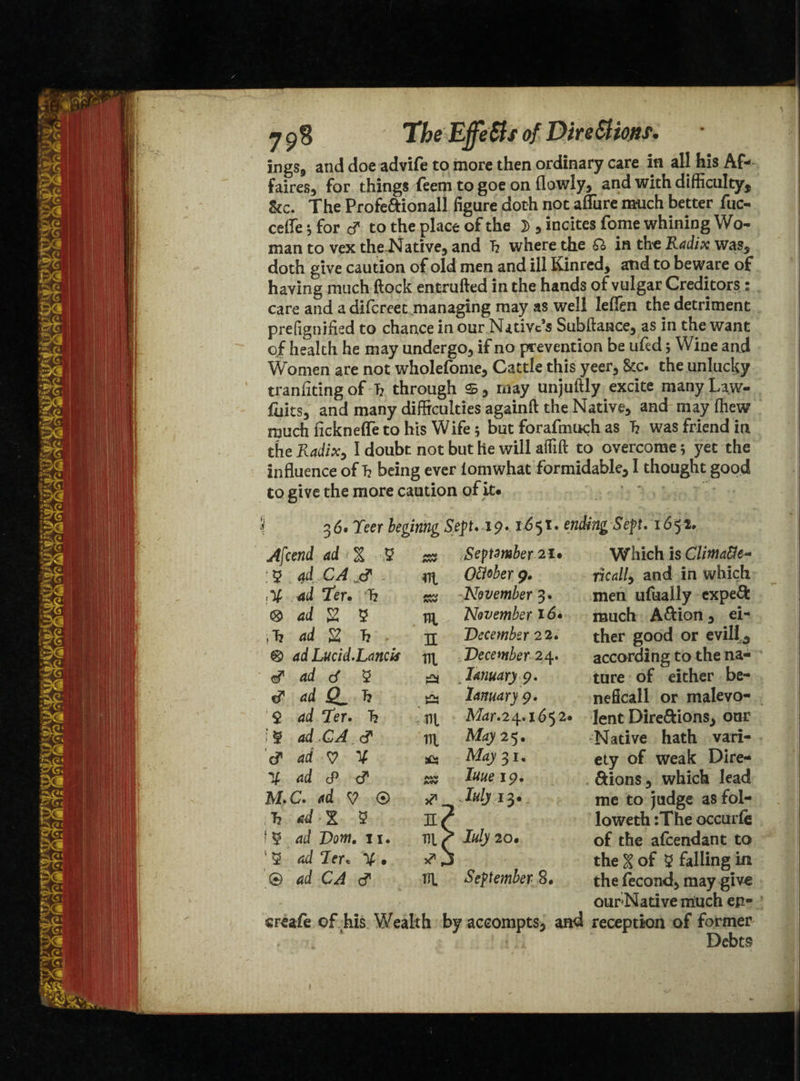 798 The Effects of Directions.
ings, and doe advise to more then ordinary care in all his Af-
faires, for things seem to goe on slowly, and with difficulty,
&c. The Profectionall figure doth not assure much better suc-
cesse; for ♂ to the place of the ☽, incites some whining Wo-
man to vex the Native, and ♄ where the ☊ in the Radix was,
doth give caution of old men and ill Kinred, and to beware of
having much stock entrusted in the hands of vulgar Creditors:
care and a discreet managing may as well lessen the detriment
presignified to chance in our Native's Substance, as in the want
of health he may undergo, if no prevention be used; Wine and
Women are not wholesome, Cattle this yeer, &c. the unlucky
transiting of ♄ through ♋, may unjustly excite many Law-
suits, and many difficulties against the Native, and may shew
much sicknesse to his Wife; but forasmuch as ♄ was friend in
the Radix, I doubt not but he will assist to overcome; yet the
influence of ♄ being ever somwhat formidable, I thought good
to give the more caution of it.
36. Yeer beginng Sept. 19. 1651. ending Sept. 1652.
Ascend ad ⚹ ☿ ♒ September 21.
☿ ad CA ♂ ♏ October 9.
♃ ad Ter. ♄ ♒ November 3.
⊗ ad SS ☿ ♏ November 16.
♄ ad SS ♄ ♊ December 22.
⊗ ad Lucid. Lancis ♏ December 24.
♂ ad ☌ ☿ ♎ Ianuary 9.
♂ ad Q ♄ ♎ Ianuary 9.
♀ ad Ter. ♄ ♏ Mar. 24. 1652.
☿ ad CA ♂ ♏ May 25.
♂ ad V ♃ ♎ May 31.
♃ ad ☍ ♂ ♒ Iuue 19.
M.C. ad V ☉ ♐ Iuly 13.
♄ ad ⚹ ☿ ♊
☿ ad Dom. 11. ♏ Iuly 20.
☿ ad Ter. ♃. ♐
☉ ad CA ♂ ♏ September 8.
Which is Climacte-
ricall, and in which
men usually expect
much Action, ei-
ther good or evill,
according to the na-
ture of either be-
neficall or malevo-
lent Directions, our
Native hath vari-
ety of weak Dire-
ctions, which lead
me to judge as fol-
loweth: The occurse
of the ascendant to
the ⚹ of ☿ falling in
the second, may give
our Native much en-
crease of his Wealth by accompts, and reception of former
Debts